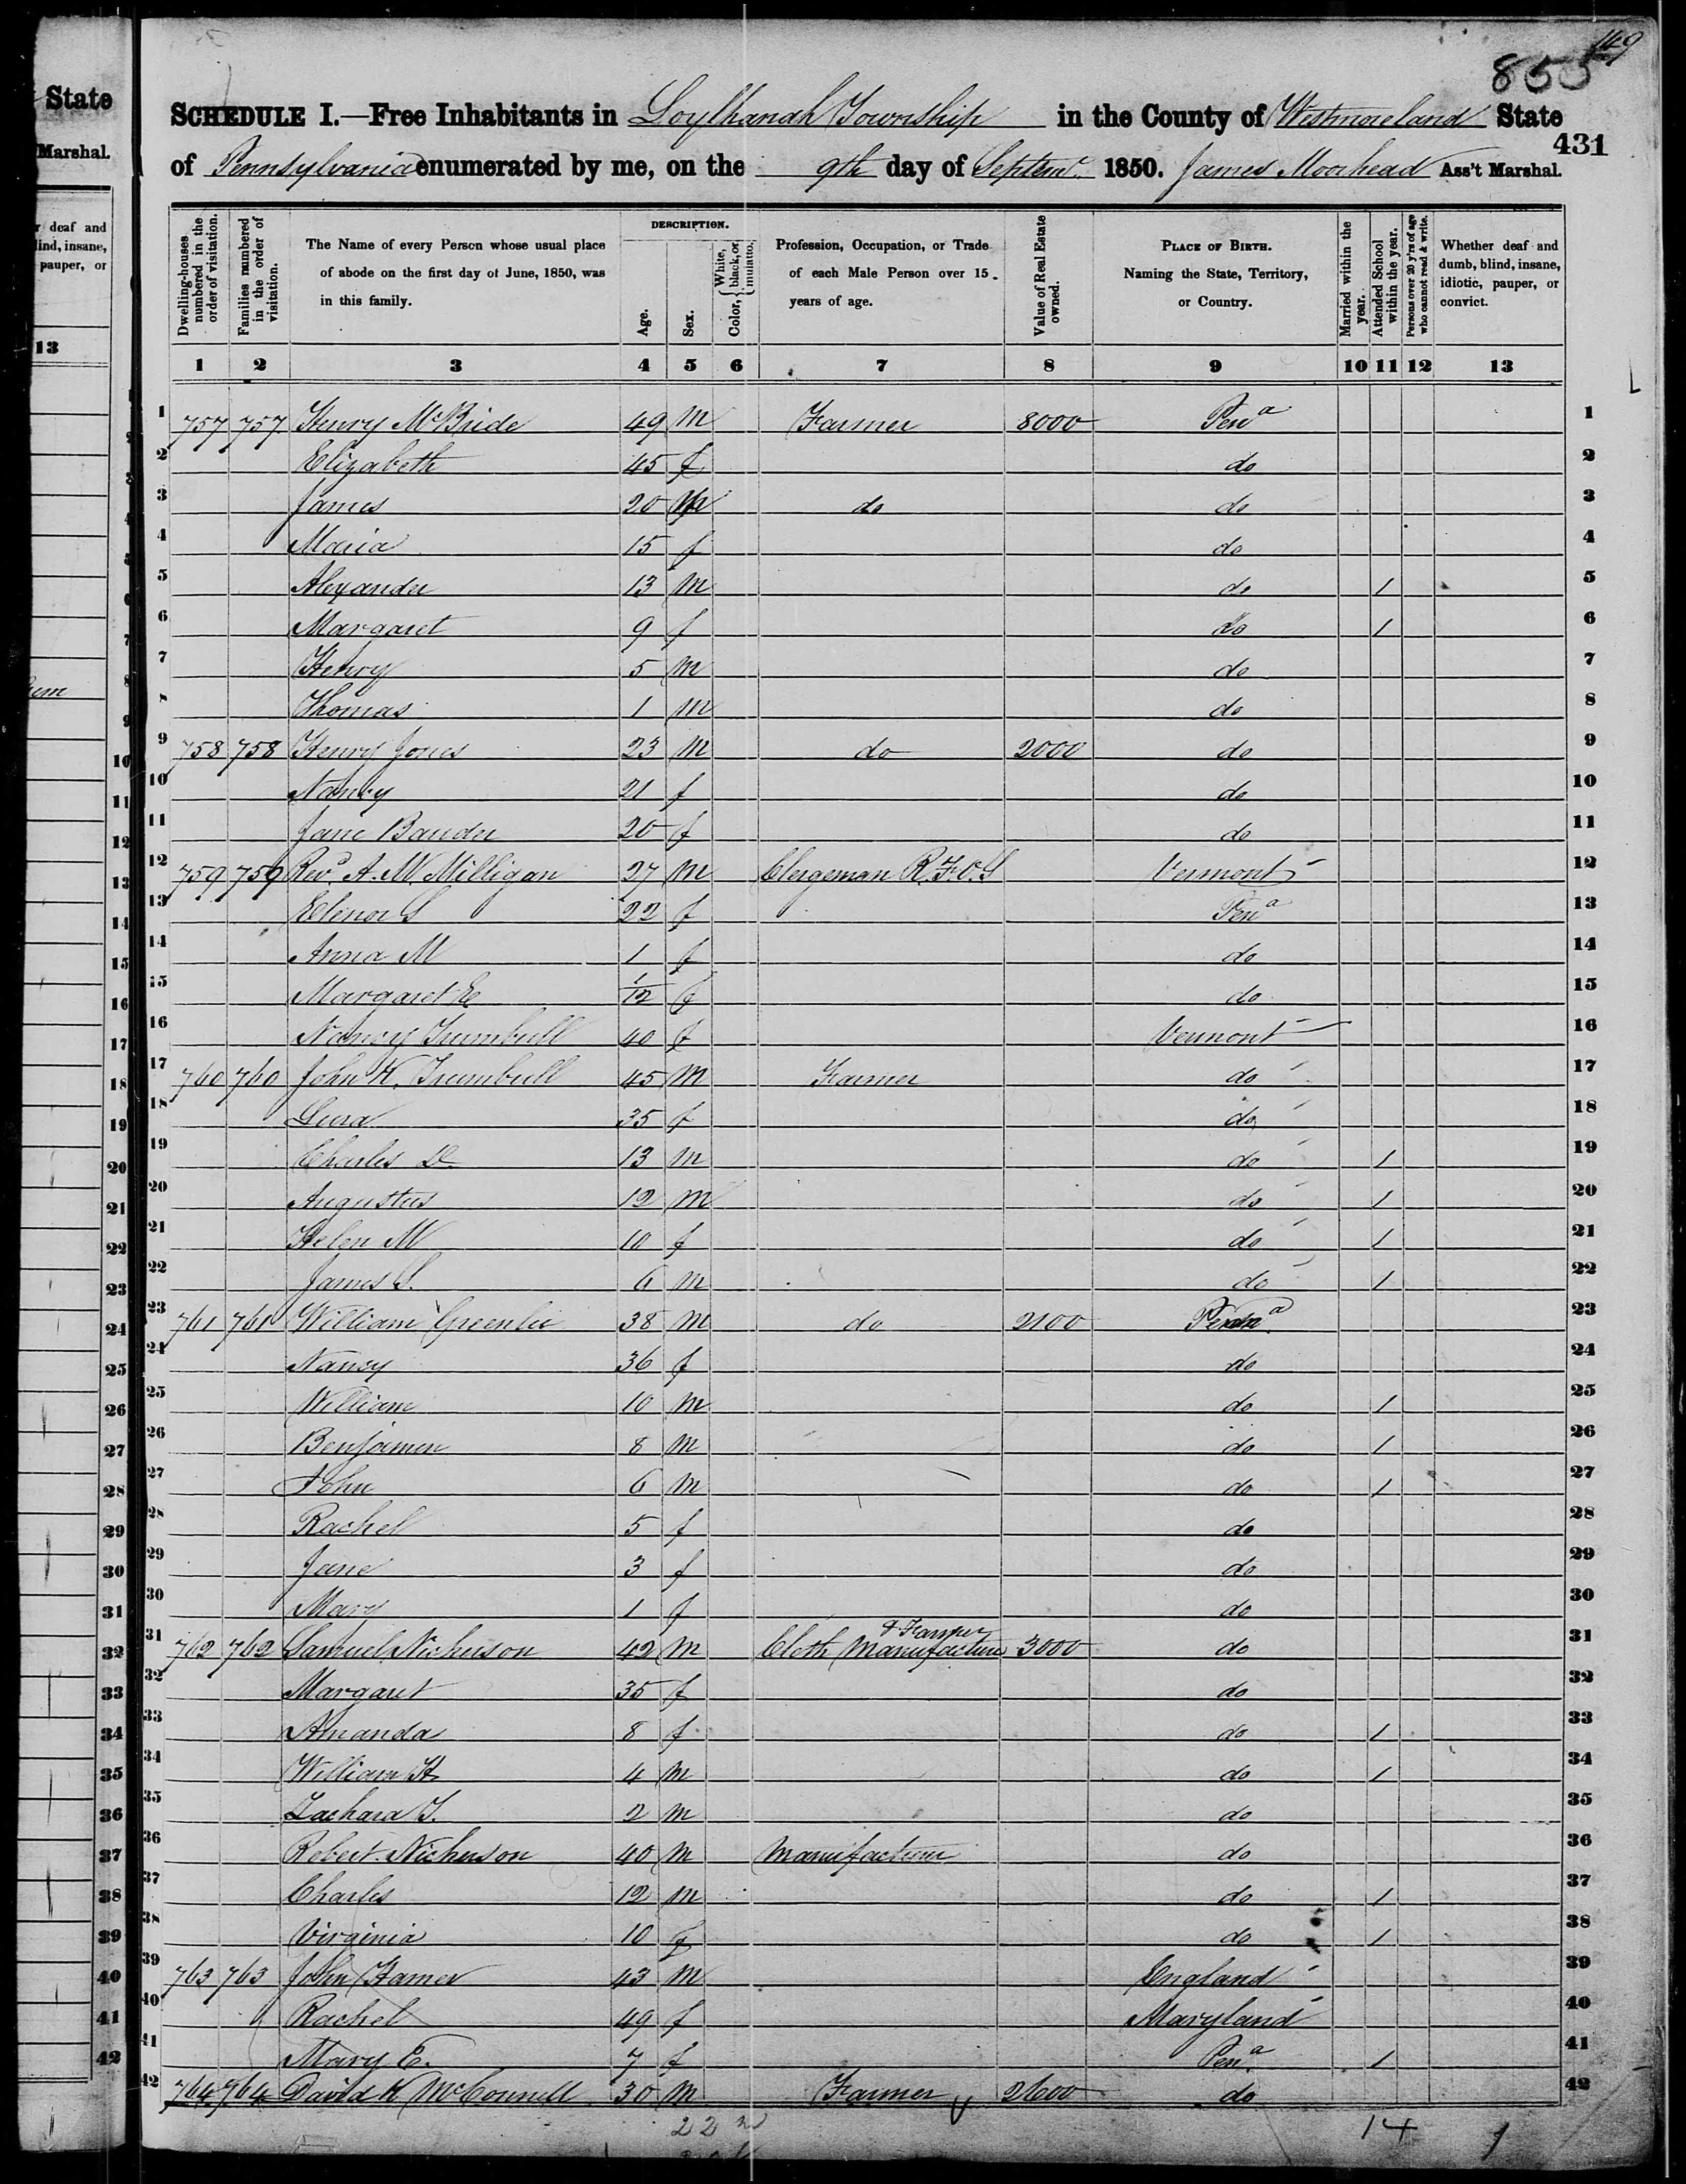 149
855
State
SCHEDULE I.—Free Inhabitants in Loylhanah Township in the County of Westmoreland State
431
Marshal.
of Pennsylvania enumerated by me, on the 9th day of Septemr 1850. James Moorhead Ass't Marshal.
Dwelling-houses numbered in the order of visitation.
Families numbered in the order of visitation.
The Name of every Person whose usual place of abode on the first day of June, 1850, was in this family.
DESCRIPTION.
Age.
Sex.
Color, White, black, or mulatto.
Profession, Occupation, or Trade of each Male Person over 15 years of age.
Value of Real Estate owned.
PLACE OF BIRTH. Naming the State, Territory, or Country.
Married within the year.
Attended School within the year.
Persons over 20 y'rs of age who cannot read & write.
Whether deaf and dumb, blind, insane, idiotic, pauper, or convict.
1 2 3 4 5 6 7 8 9 10 11 12 13
1 757 757 Henry McBride 49 m Farmer 8000 Pena 1
2 Elizabeth 45 f do 2
3 James 20 m do do 3
4 Maria 15 f do 4
5 Alexander 13 m do 1 5
6 Margaret 9 f do 1 6
7 Henry 5 m do 7
8 Thomas 1 m do 8
9 758 758 Henry Jones 23 m do 2000 do 9
10 Nancy 21 f do 10
11 Jane Bauder 20 f do 11
12 759 759 Revd. A. M. Milligan 27 m Clergeman Vermont 12
13 Elenor S 22 f Pena 13
14 Anna M 1 f do 14
15 Margaret E 1/12 f do 15
16 Nancy Trumbull 40 f Vermont 16
17 760 760 John K. Trumbull 45 m Farmer do 17
18 Lura 35 f do 18
19 Charles D. 13 m do 1 19
20 Augustus 12 m do 1 20
21 Helen M 10 f do 1 21
22 James S. 6 m do 1 22
23 761 761 William Greenlee 38 m do 2100 Penna 23
24 Nancy 36 f do 24
25 William 10 m do 1 25
26 Benjamen 8 m do 1 26
27 John 6 m do 1 27
28 Rachel 5 f do 28
29 Jane 3 f do 29
30 Mary 1 f do 30
31 762 762 Samuel Nickerson 42 m Cloth Manufacturer & Farmer 3000 do 31
32 Margaret 35 f do 32
33 Amanda 8 f do 1 33
34 William H 4 m do 1 34
35 Zachara T. 2 m do 35
36 Robert Nickerson 40 m Manufacturer do 36
37 Charles 12 m do 1 37
38 Virginia 10 f do 1 38
39 763 763 John Hamer 43 m England 39
40 Rachel 49 f Maryland 40
41 Mary E. 7 f Pena 1 41
42 764 764 David K McConnell 30 m Farmer 2600 do 42
22 m
14
1